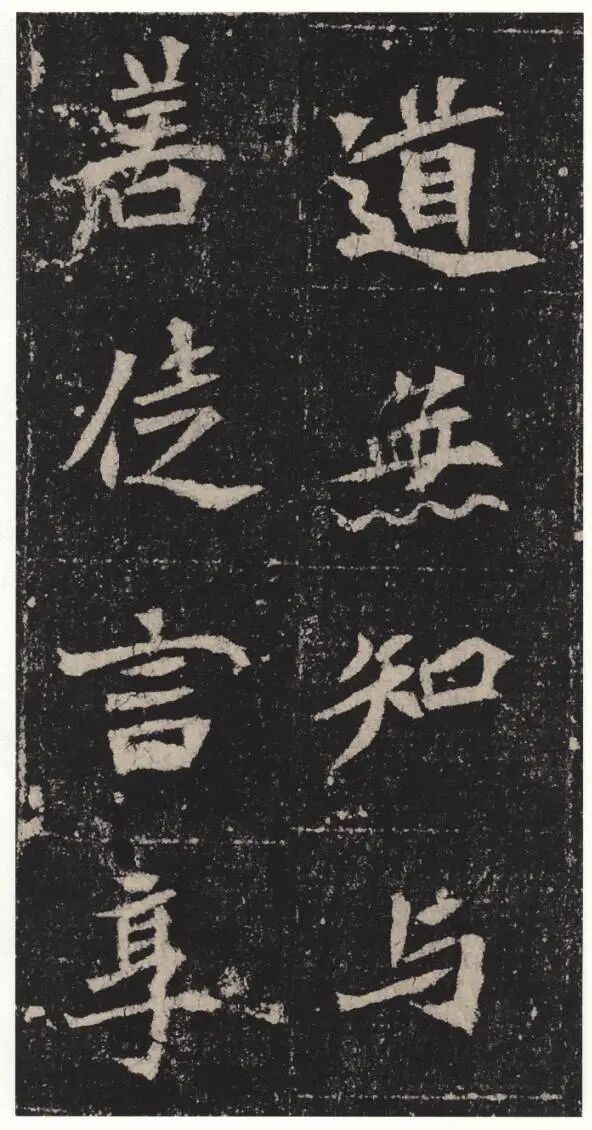 道無知与
善徒言享